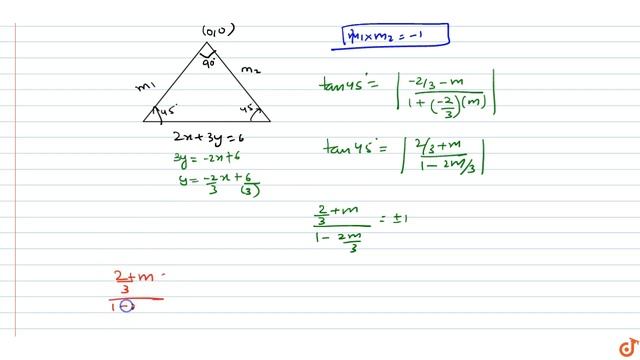 (0,0)
90°
m1
m2
45°
45°
2x+3y=6
3y=-2x+6
y=-2/3 x+6/(3)
m1×m2=-1
tan45°=|(-2/3-m)/(1+(-2/3)(m))|
tan45°=|(2/3+m)/(1-2m/3)|
(2/3+m)/(1-2m/3)=±1
2/3+m
1-
doubtnut